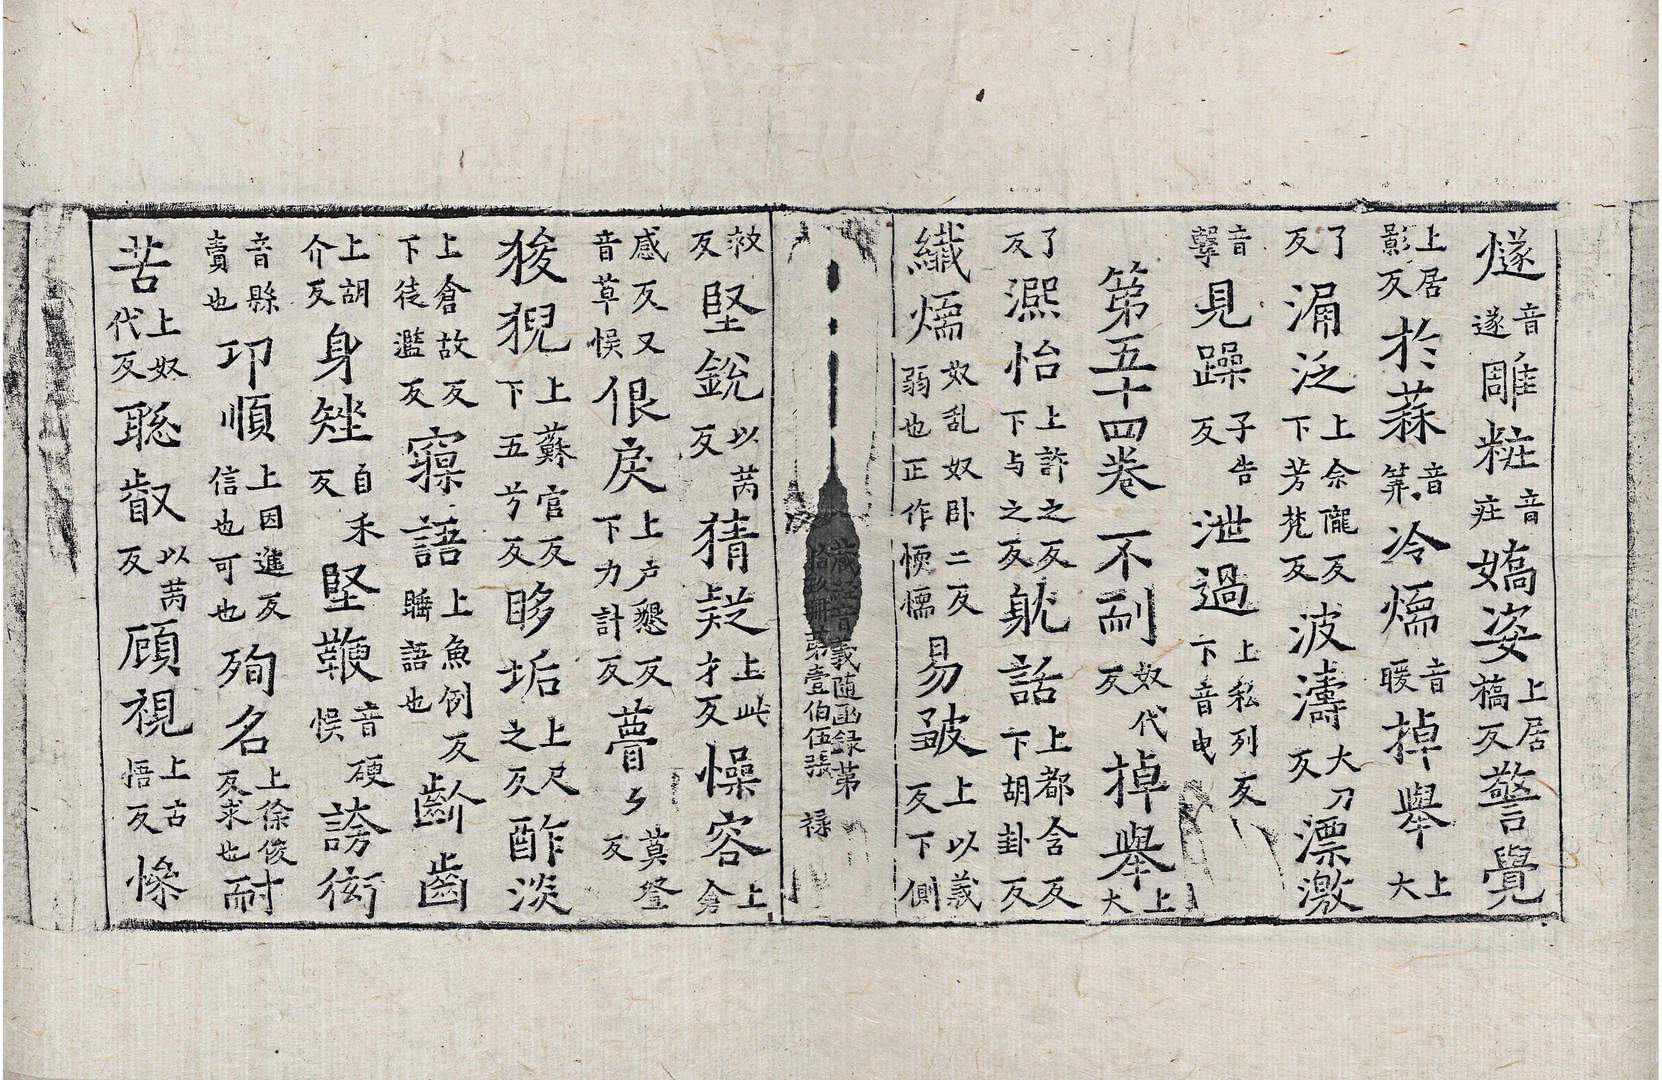 燧音遂雕粧音疰嬌姿上居矯反警覺
上居影反於蒜音筭冷煗音暖掉舉上大
了反漏泛上余隴反下芳梵反波濤大刀反漂激
音擊見躁子告反泄過上私列反下音电
第五十四卷不耐奴代反掉舉上大
了反凞怡上許之反下与之反躭話上都含反下胡卦反
纎煗奴乱奴卧二反弱也正作愞懦易皺上以義反下側
藏經音義随函録第拾玖冊第壹伯伍張 禄
救反堅銳以芮反猜疑上此才反懆容上倉
感反又音草悮佷戾上户懇反下力計反瞢莫登反
狻猊上蘇官反下五兮反眵垢上尺之反酢淡
上倉故反下徒濫反寱語上魚例反睡語也齡齒
上胡介反身矬自禾反堅鞕音硬悮誇衒
音縣賣也印順上因進反信也可也殉名上徐俊反求也耐
苦上奴代反聡叡以芮反顧視上古悟反慘